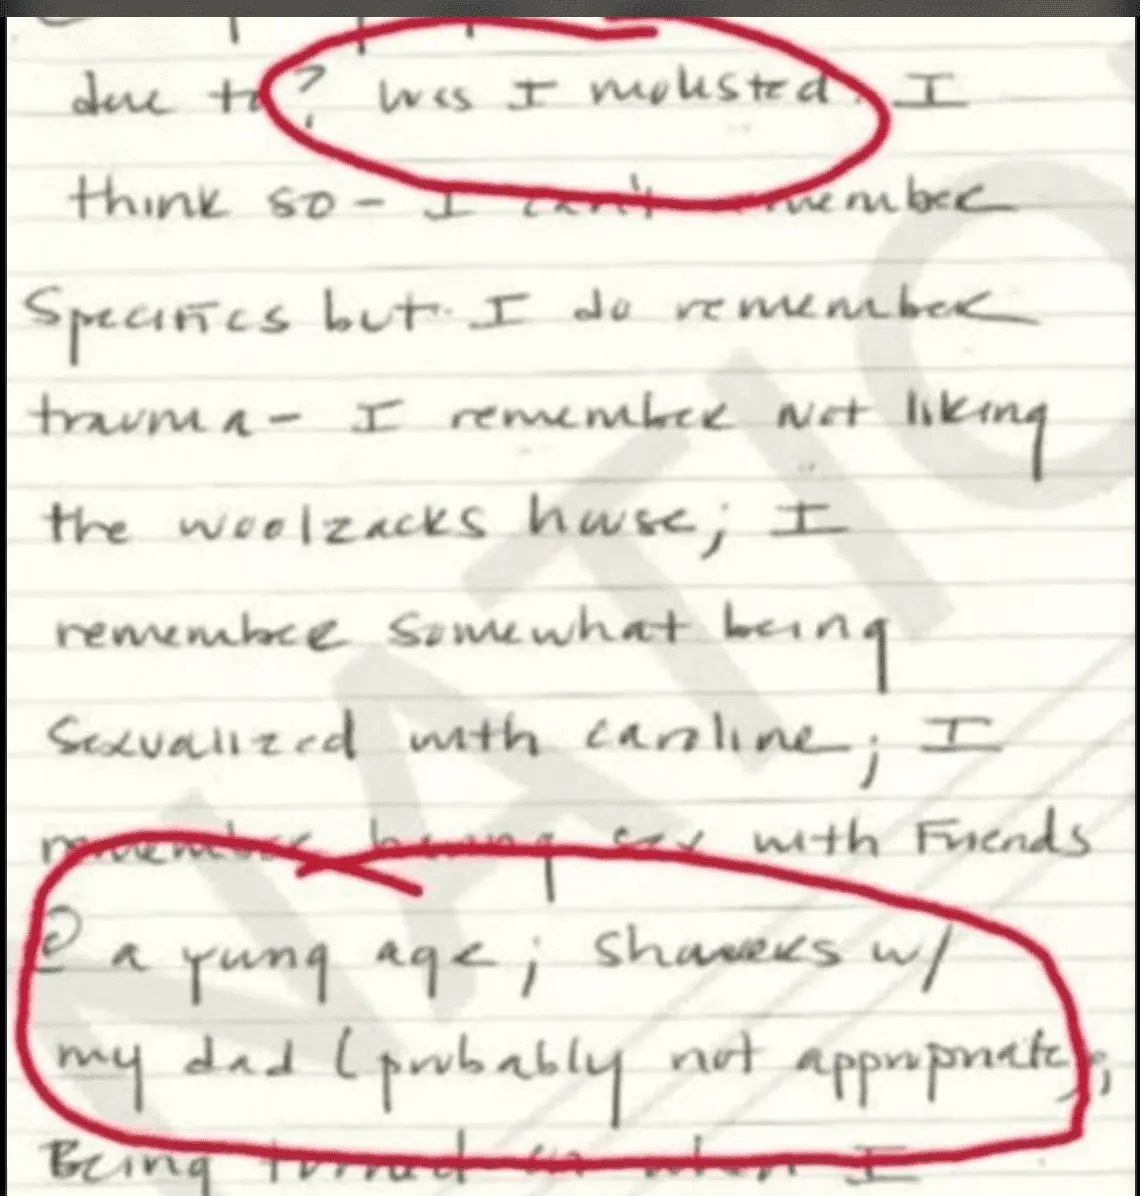 due to? Was I molested. I
think so - I can't remember
specifics but I do remember
trauma - I remember not liking
the woolzacks house; I
remember somewhat being
sexualized with caroline; I
remember having sex with Friends
@ a young age; showers w/
my dad (probably not appropriate);
Being turned on when I
NATIO